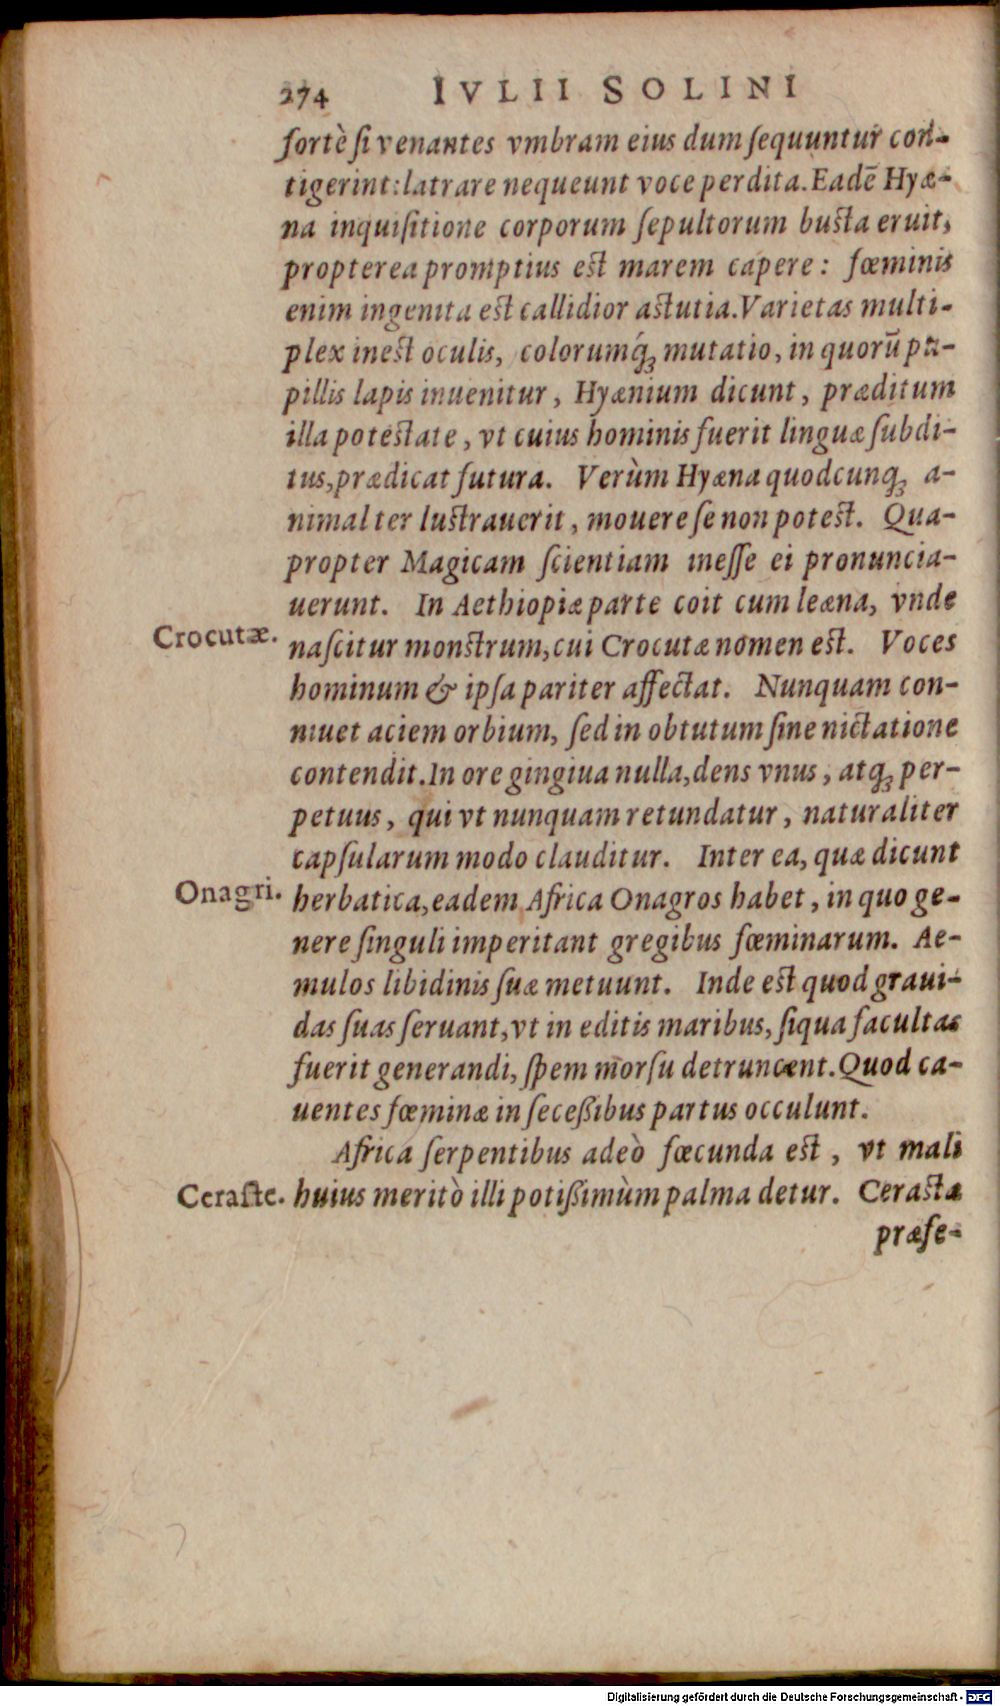 274 IVLII SOLINI
fortè ſi venantes vmbram eius dum ſequuntur con-
tigerint: latrare nequeunt voce perdita. Eadē Hyæ-
na inquiſitione corporum ſepultorum buſta eruit,
propterea promptius eſt marem capere: fœminis
enim ingenita eſt callidior aſtutia. Varietas multi-
plex ineſt oculis, colorumq́; mutatio, in quorū pu-
pillis lapis inuenitur, Hyænium dicunt, præditum
illa poteſtate, vt cuius hominis fuerit linguæ ſubdi-
tus, prædicat futura. Verùm Hyæna quodcunq; a-
nimal ter luſtrauerit, mouere ſe non poteſt. Qua-
propter Magicam ſcientiam ineſſe ei pronuncia-
uerunt. In Aethiopiæ parte coit cum leæna, vnde
Crocutæ. naſcitur monſtrum, cui Crocutæ nomen eſt. Voces
hominum & ipſa pariter affectat. Nunquam con-
niuet aciem orbium, ſed in obtutum ſine nictatione
contendit. In ore gingiua nulla, dens vnus, atq; per-
petuus, qui vt nunquam retundatur, naturaliter
capſularum modo clauditur. Inter ea, quæ dicunt
Onagri. herbatica, eadem Africa Onagros habet, in quo ge-
nere ſinguli imperitant gregibus fœminarum. Ae-
mulos libidinis ſuæ metuunt. Inde eſt quod graui-
das ſuas ſeruant, vt in editis maribus, ſiqua facultas
fuerit generandi, ſpem morſu detruncent. Quod ca-
uentes fœminæ in ſeceßibus partus occulunt.
Africa ſerpentibus adeò fœcunda eſt, vt mali
Ceraſte. huius meritò illi potißimùm palma detur. Ceraſtæ
præfe-
Digitalisierung gefördert durch die Deutsche Forschungsgemeinschaft - DFG